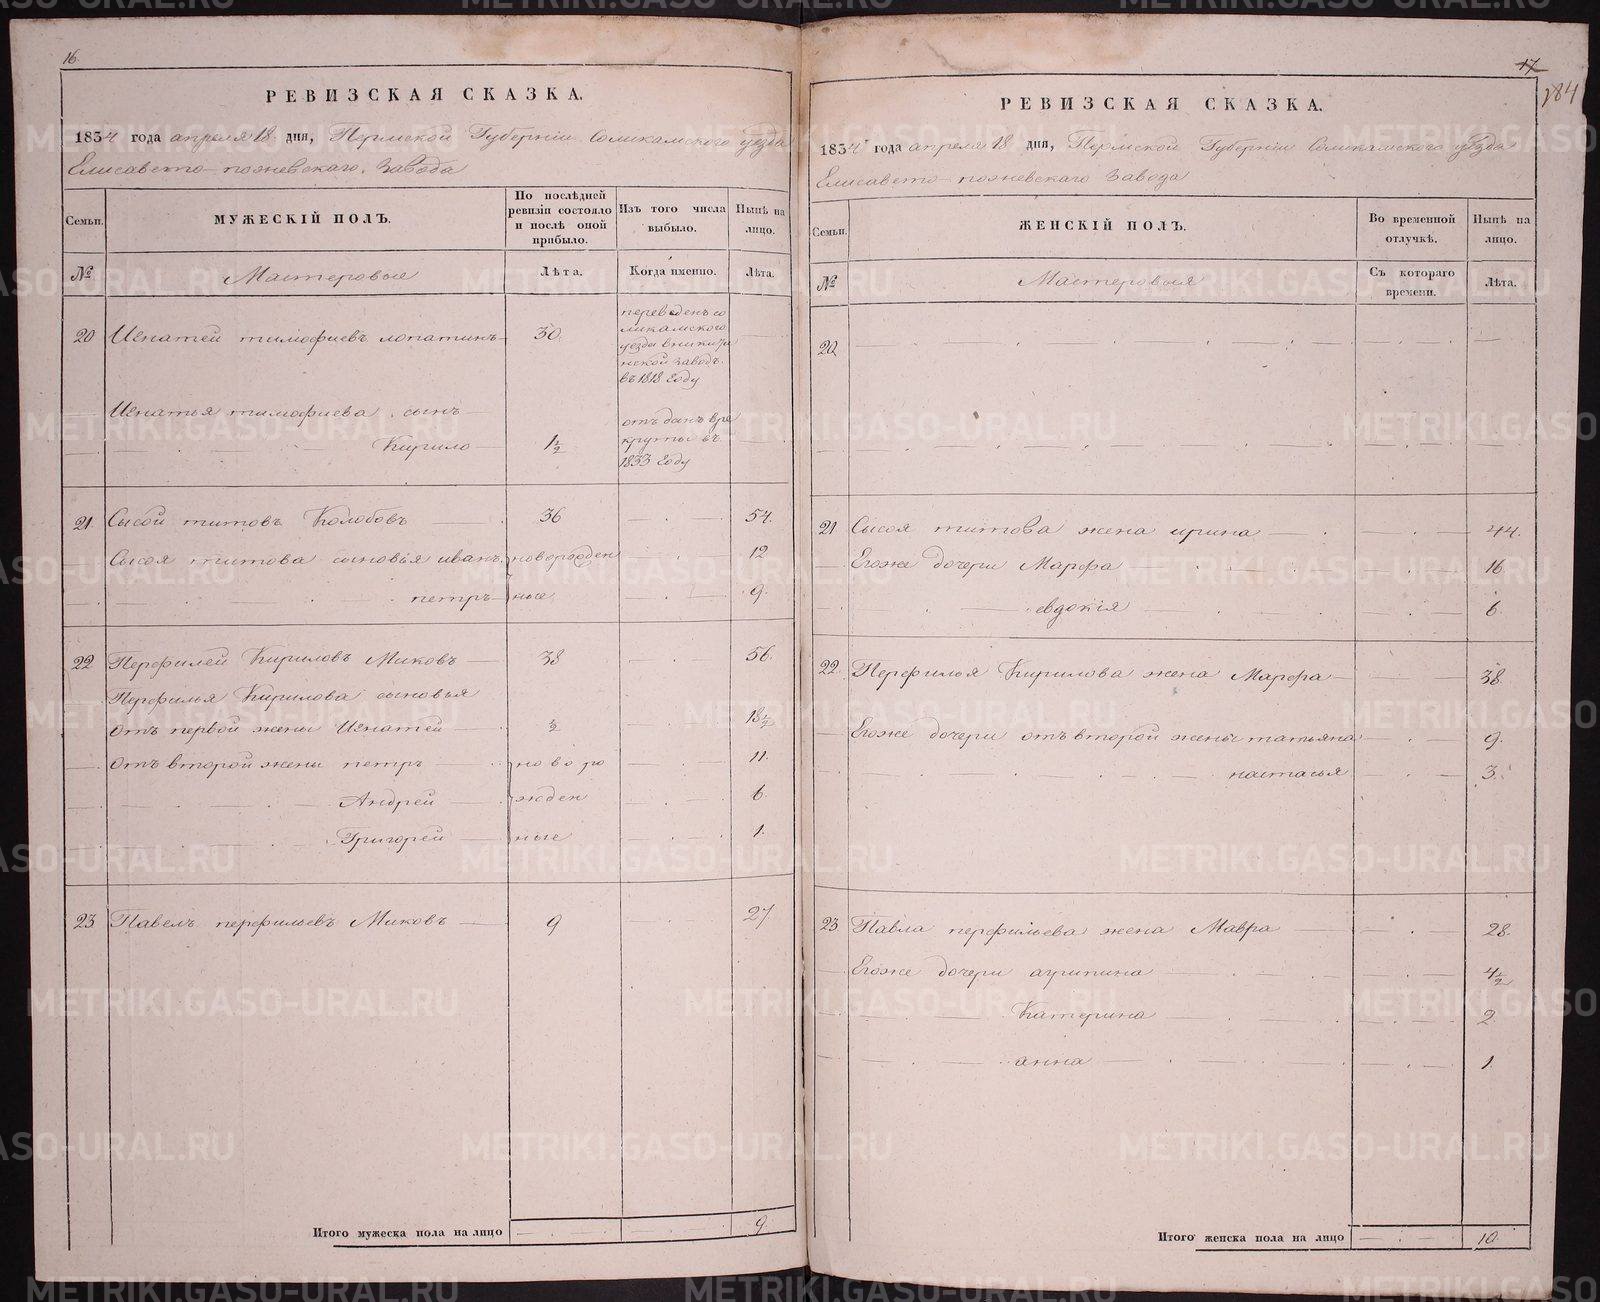 16.
РЕВИЗСКАЯ СКАЗКА.
1834 года апреля 18 дня, Пермской Губерніи Соликамского уезда
Елисавето-пожевскаго завода
Семьи.
МУЖЕСКІЙ ПОЛЪ.
По послѣдней ревизіи состояло и послѣ оной прибыло.
Изъ того числа выбыло.
Нынѣ на лицо.
№ Мастеровые Лѣта. Когда именно. Лѣта.
20 Игнатей тимофиевъ лопатинъ 30
переведенъ со
ликамского
уезда вникити
нской заводъ
въ 1818 году
Игнатья тимофиева сынъ
Кирило 1 1/2
отъданъ вре
круты въ
1833 году
21 Сысой титовъ Колобовъ 36 54.
Сысоя титова сыновья иванъ новорожден 12
петръ ные 9.
22 Перфилей Кириловъ Миковъ 38 56.
Перфилья Кирилова сыновья
отъ первой жены Игнатей 1/2 18 1/2
отъ второй жены петръ новоро 11.
Андрей жден 6
Григорей ные 1.
23 Павелъ перфильевъ Миковъ 9 27
Итого мужеска пола на лицо 9.
17
184
РЕВИЗСКАЯ СКАЗКА.
1834 года апреля 18 дня, Пермской Губерніи Соликамского уезда
Елисавето-пожевскаго завода
Семьи.
ЖЕНСКІЙ ПОЛЪ.
Во временной отлучкѣ.
Нынѣ на лицо.
№ Мастеровыя Съ котораго времени. Лѣта.
20
21 Сысоя титова жена ирина 44.
Егоже дочери Марфа 16
евдокія 6.
22 Перфилья Кирилова жена Марфа 38
Егоже дочери отъ второй жены татьяна 9.
настасья 3.
23 Павла перфильева жена Мавра 28.
Егоже дочери агрипина 4 1/2
Катерина 2
анна 1.
Итого женска пола на лицо 10
METRIKI.GASO-URAL.RU